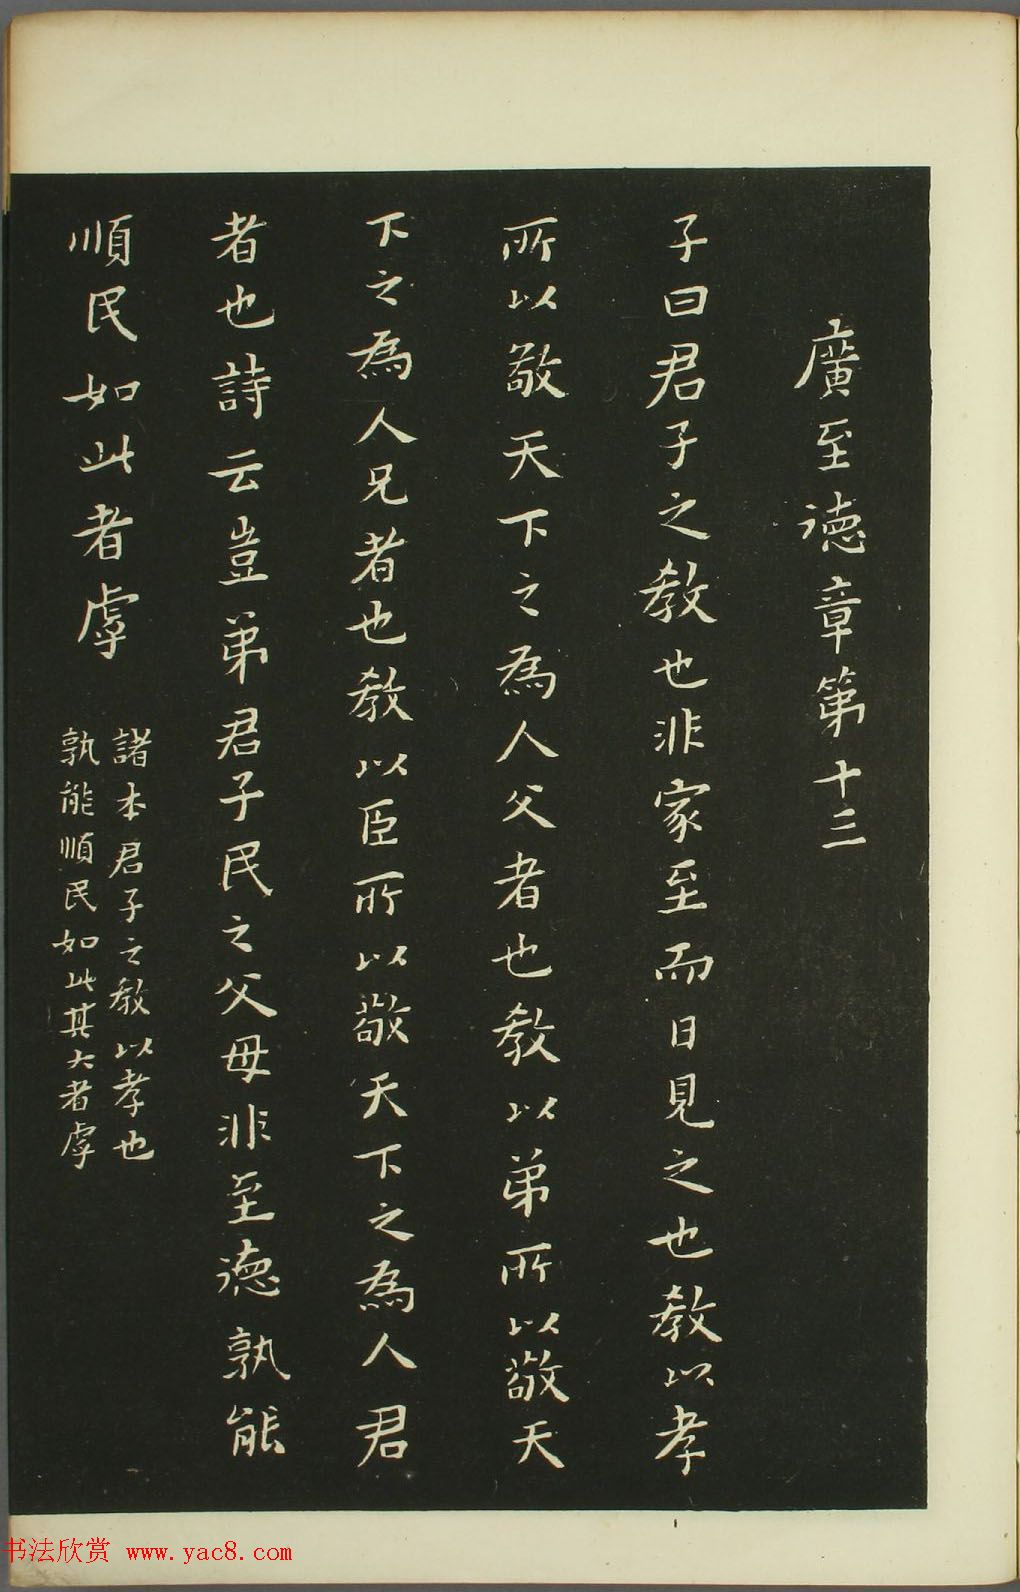 廣至德章第十三
子曰君子之教也非家至而日見之也教以孝
所以敬天下之為人父者也教以弟所以敬天
下之為人兄者也教以臣所以敬天下之為人君
者也詩云豈弟君子民之父母非至德孰能
順民如此者虖
諸本君子之教以孝也
孰能順民如此其大者虖
书法欣赏 www.yac8.com